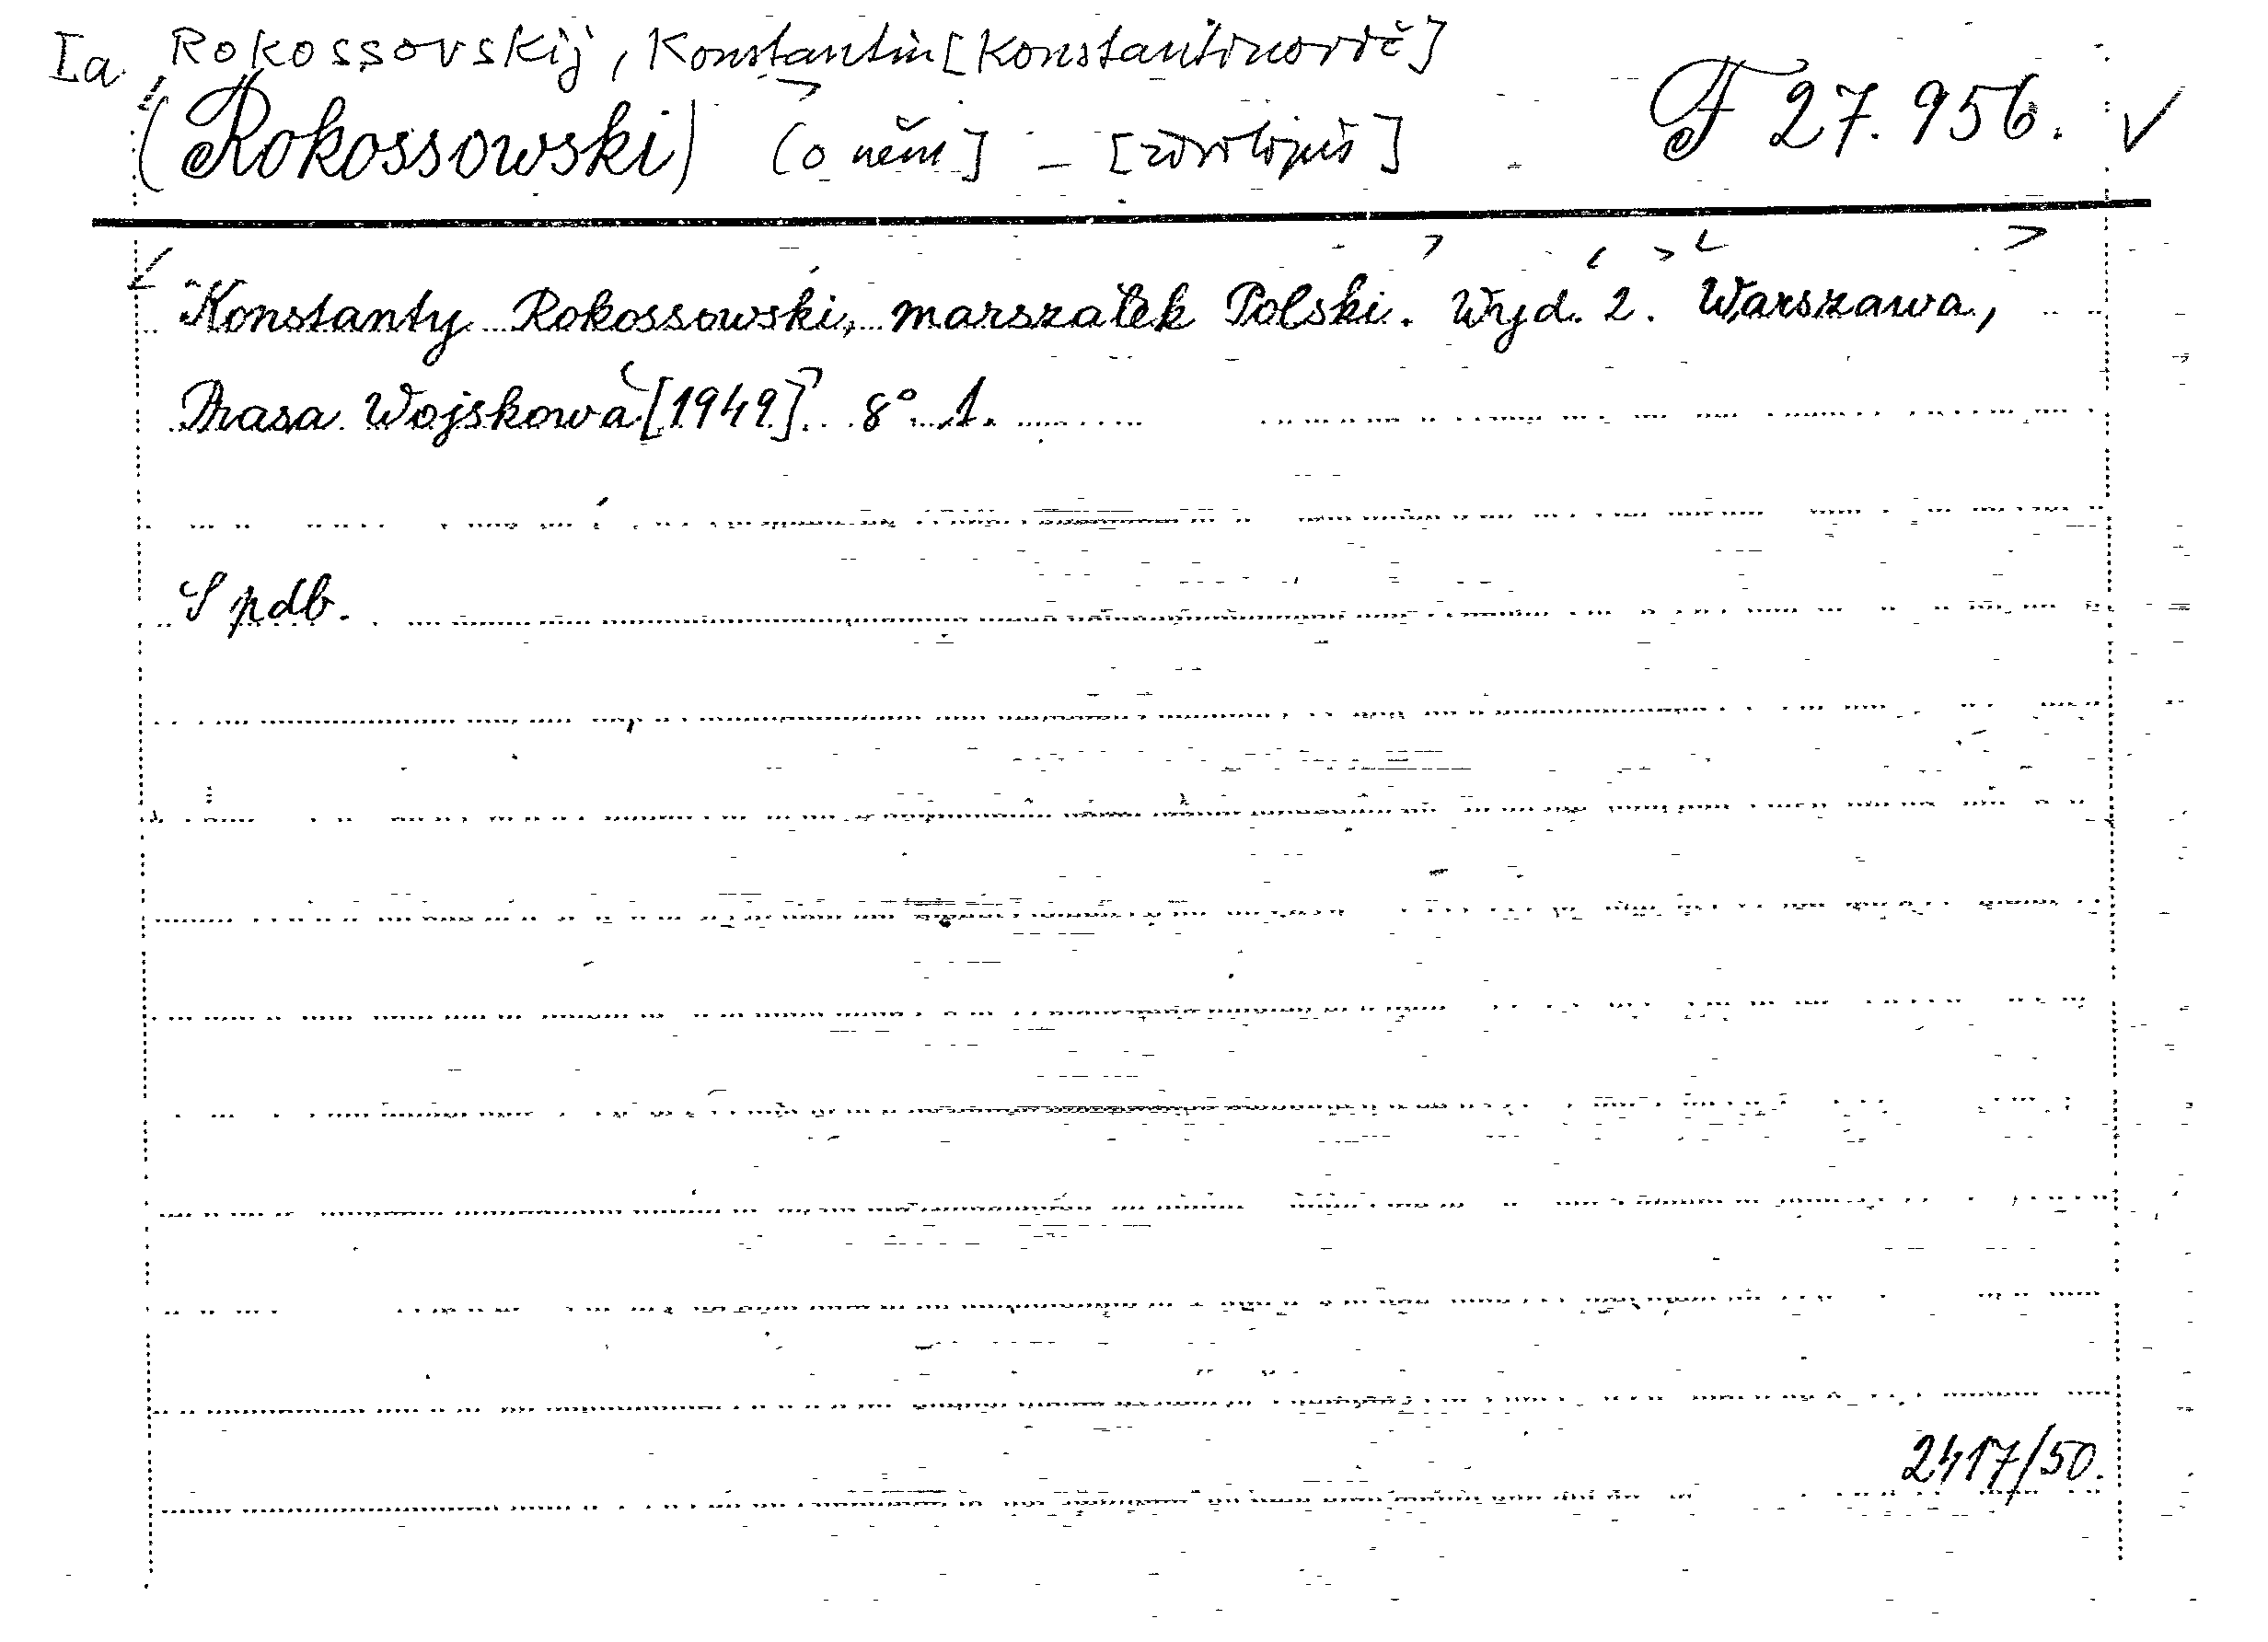 Ia Rokossovskij, Konstantin [Konstantinovič]
(Rokossowski) [o něm] - [životopis] F 27.956. ✓
Konstanty Rokossowski, marszałek Polski. Wyd. 2. Warszawa,
Prasa Wojskowa [1949]. 8° 1.
S pdb.
2417/50.